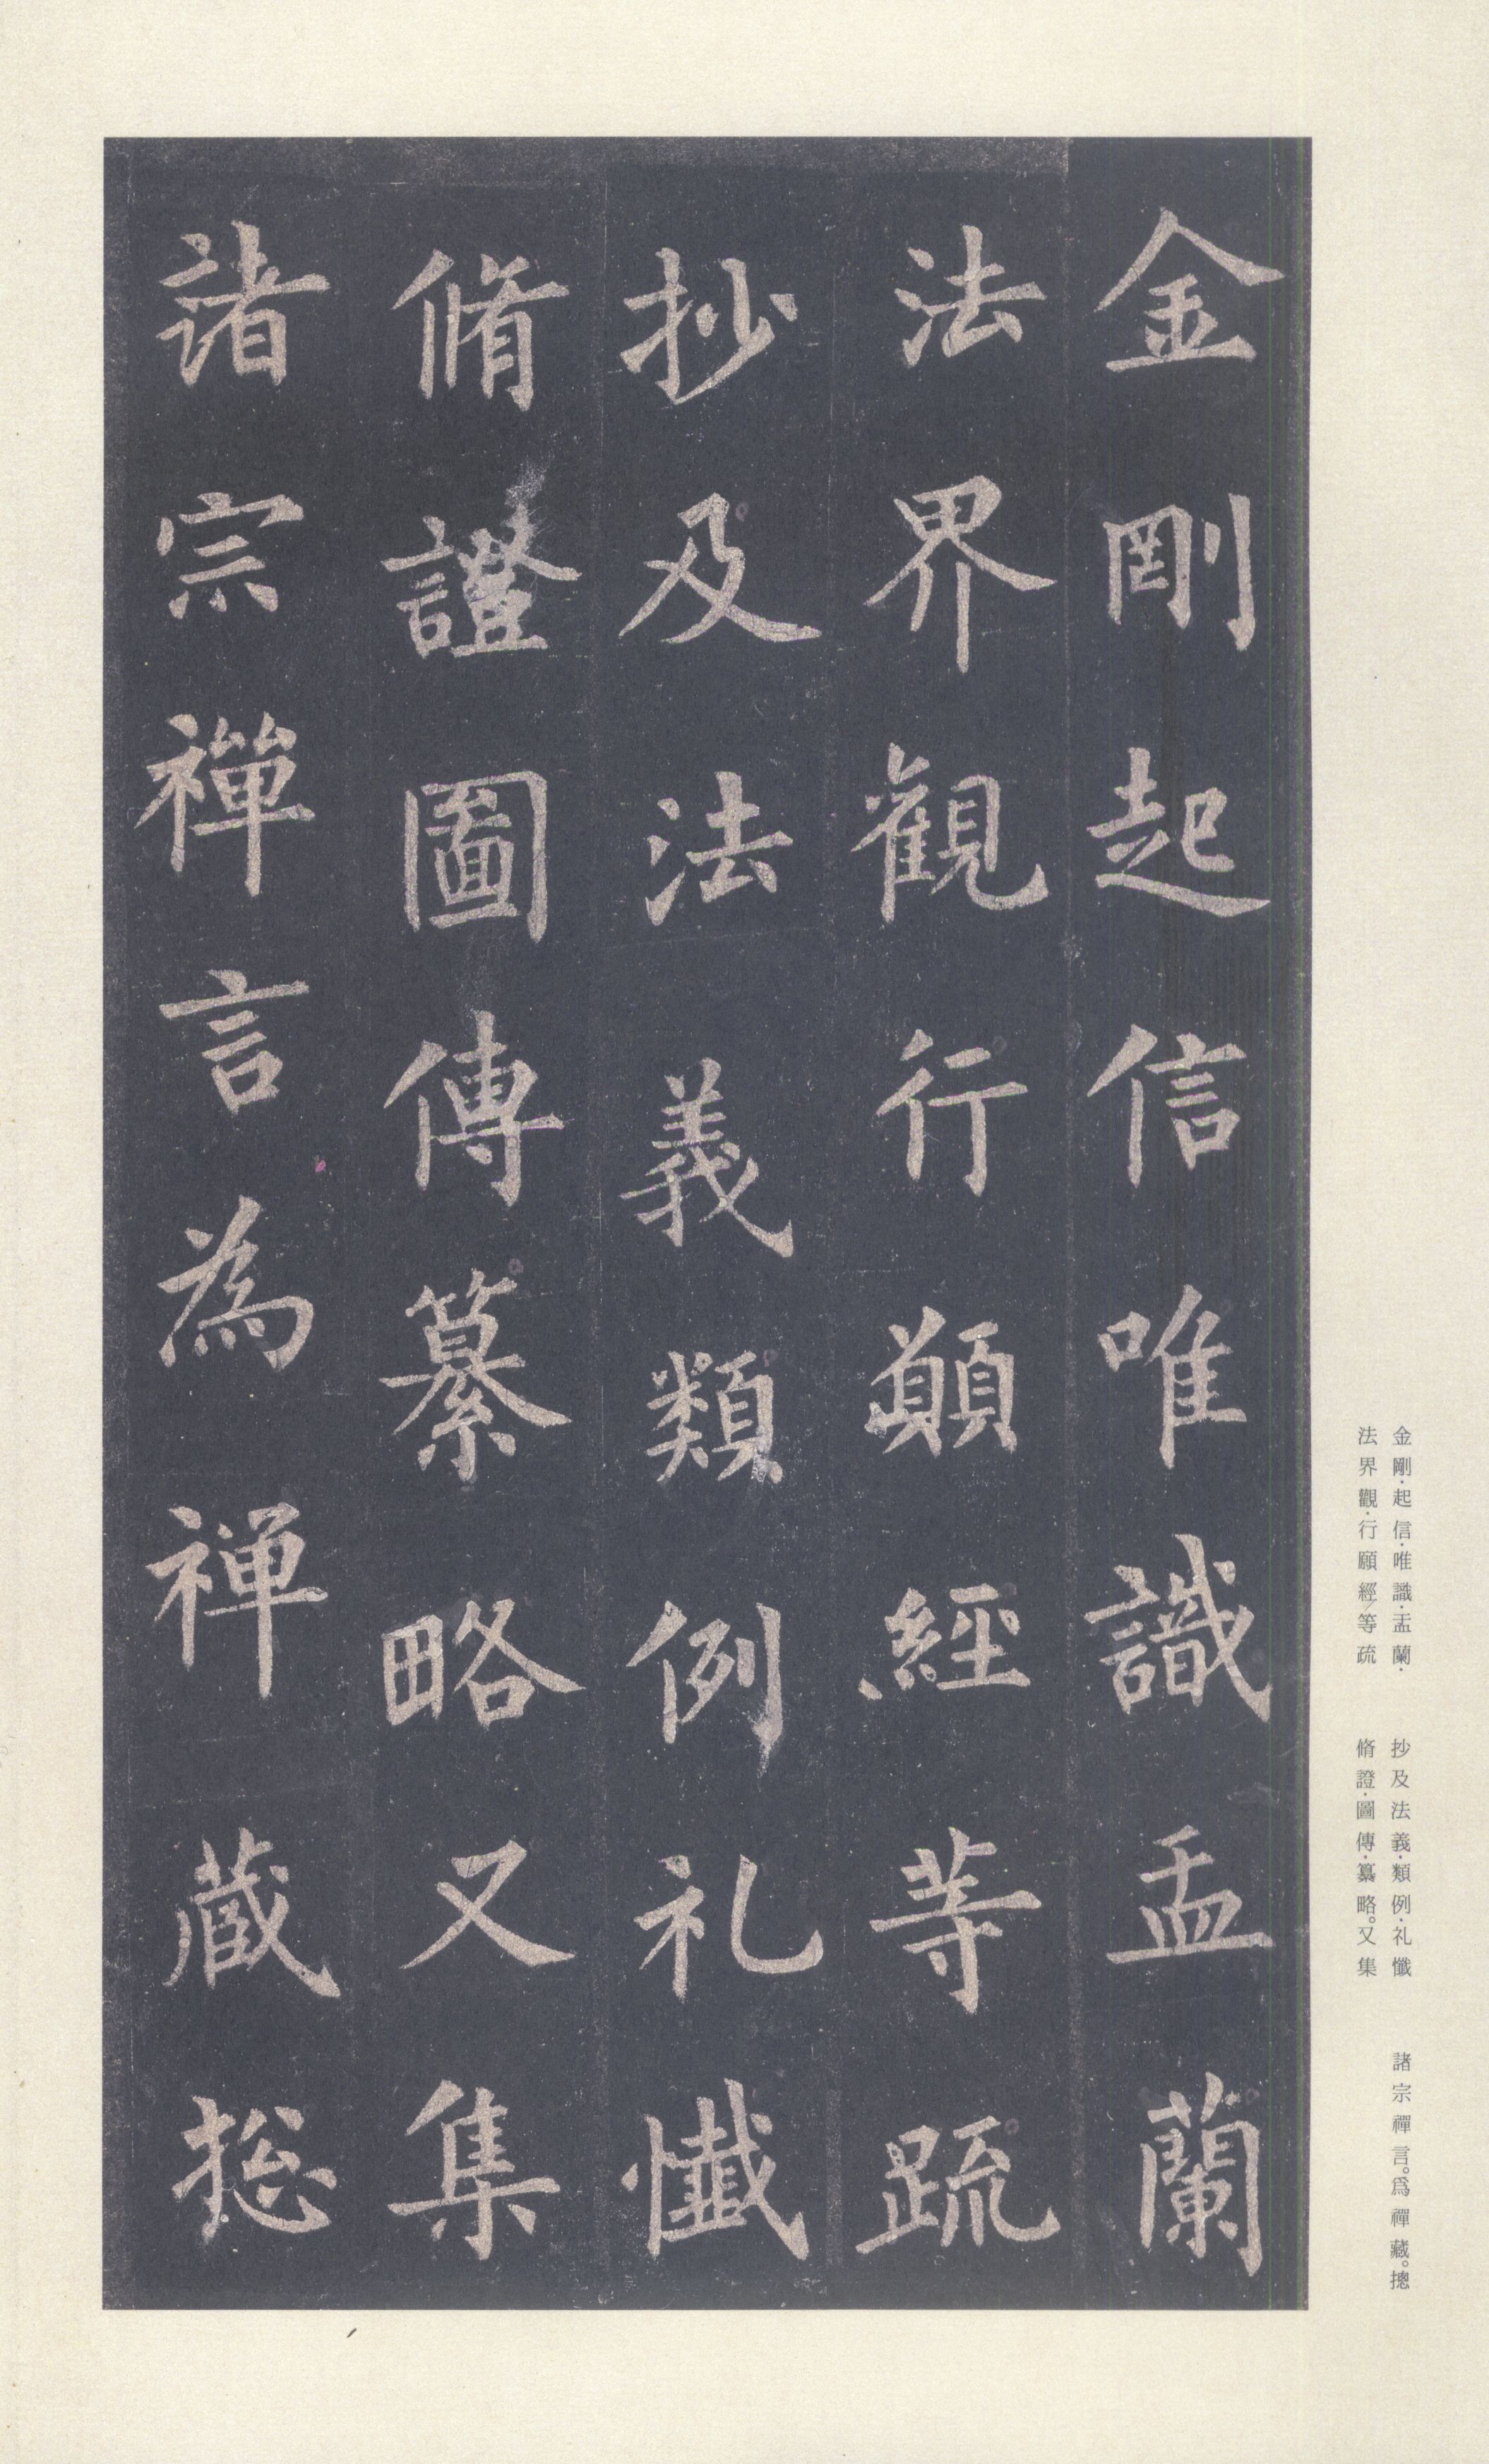 金剛起信唯識盂蘭
法界觀行願經等疏
抄及法義類例礼懺
脩證圖傳纂略又集
諸宗禪言為禅藏捴
金剛·起信·唯識·盂蘭·
法界觀·行願經／等疏
抄及法義·類例·礼懺
脩證·圖傳·纂略。又集
諸宗禪言。爲禪藏。摠